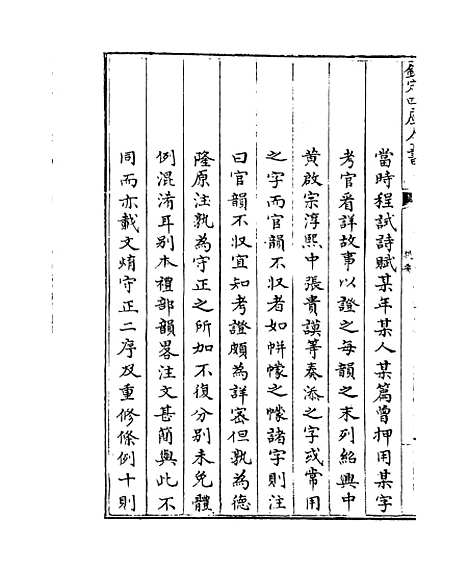 欽定四庫全書
提要
當時程試詩賦某年某人某篇曽押用某字
考官看詳故事以證之每韻之末列紹興中
黄啟宗淳熙中張貴謨等奏添之字或常用
之字而官韻不収者如帡幪之幪諸字則注
曰官韻不収宜知考證頗為詳密但孰為德
隆原注孰為守正之所加不復分别未免體
例混淆耳别本禮部韻畧注文甚簡與此不
同而亦載文焴守正二序及重修條例十則